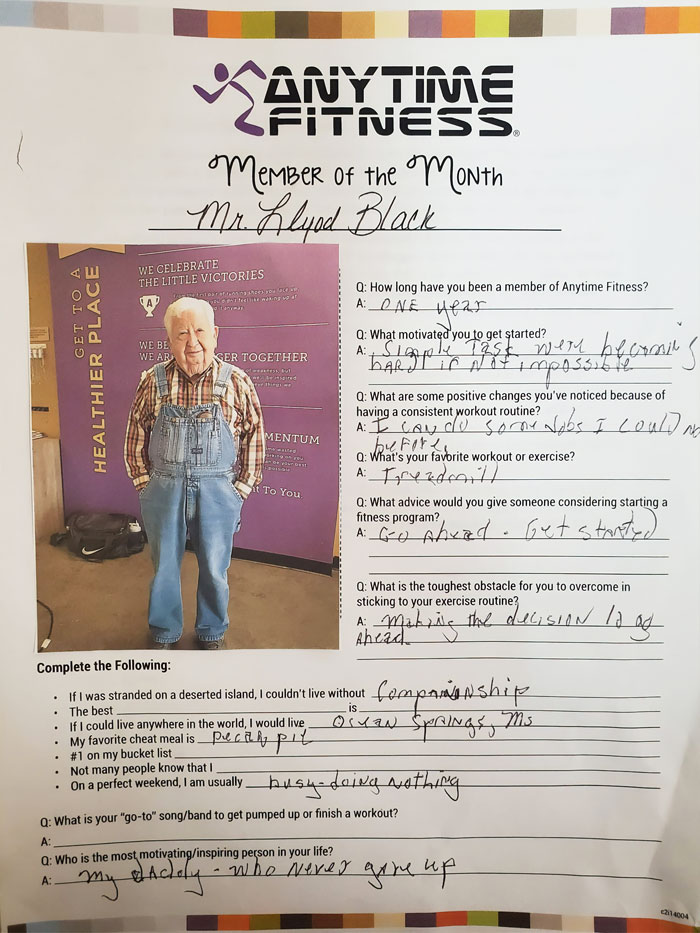 ANYTIME
FITNESS®
MEMBER OF THE MONTH
Mr. Llyod Black
GET TO A
HEALTHIER PLACE
WE CELEBRATE
THE LITTLE VICTORIES
A
WE BE
WE ARE GER TOGETHER
MENTUM
nt To You
Q: How long have you been a member of Anytime Fitness?
A: ONE year
Q: What motivated you to get started?
A: Simple Task were becoming
hard if not impossible
Q: What are some positive changes you've noticed because of
having a consistent workout routine?
A: I can do some Jobs I could no
before.
Q: What's your favorite workout or exercise?
A: Treadmill
Q: What advice would you give someone considering starting a
fitness program?
A: Go Ahead - Get started
Q: What is the toughest obstacle for you to overcome in
sticking to your exercise routine?
A: Making the decision to go
Ahead.
Complete the Following:
• If I was stranded on a deserted island, I couldn't live without Companionship
• The best is
• If I could live anywhere in the world, I would live Ocean Springs, Ms
• My favorite cheat meal is pecan pie
• #1 on my bucket list
• Not many people know that I
• On a perfect weekend, I am usually busy-doing nothing
Q: What is your "go-to" song/band to get pumped up or finish a workout?
A:
Q: Who is the most motivating/inspiring person in your life?
A: My daddy - who never gave up
c2i14004